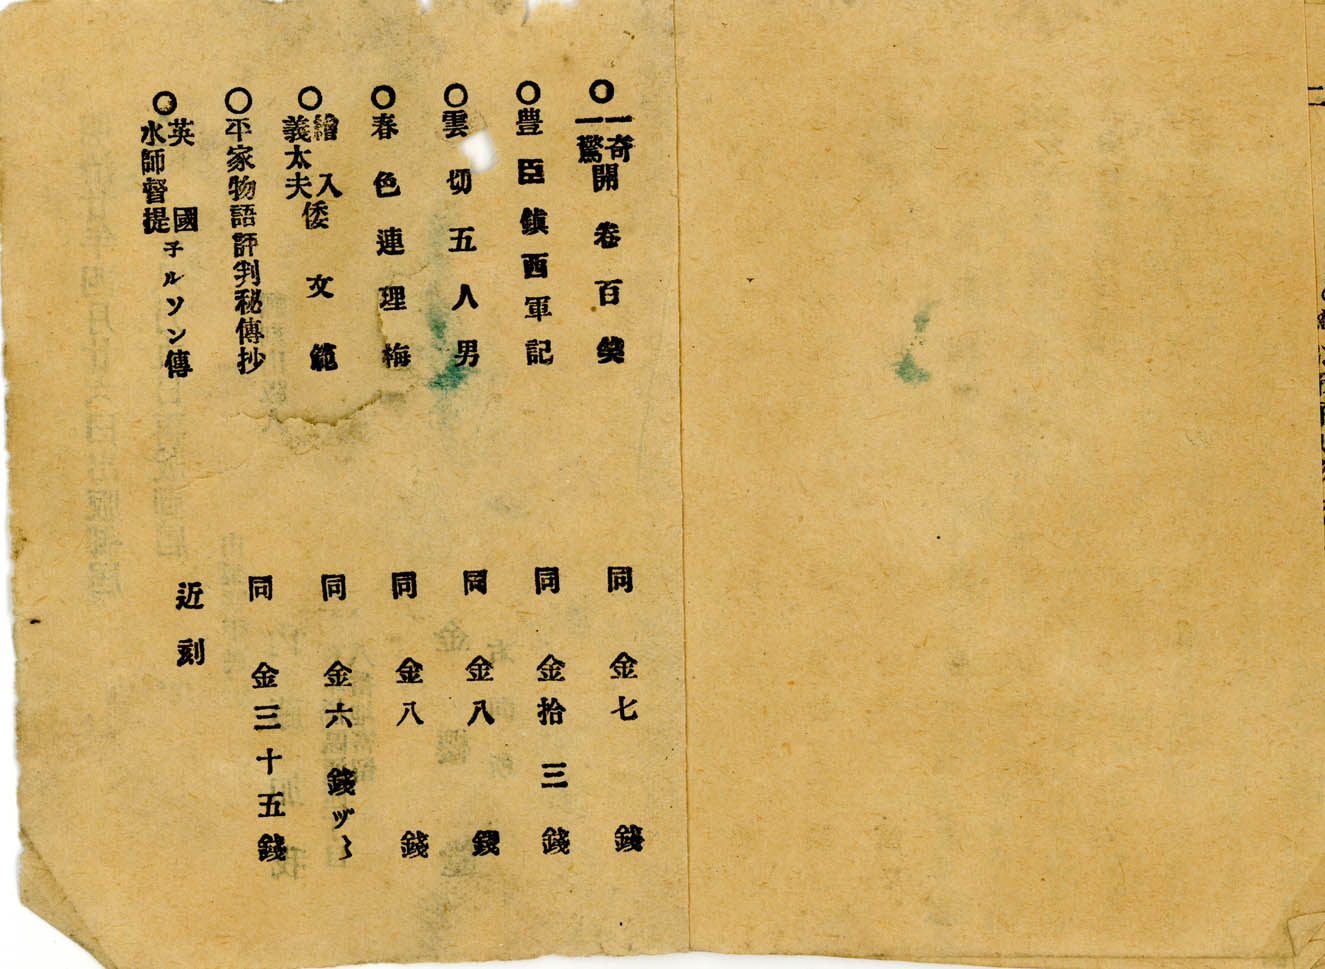 ○一奇一驚開卷百笑 同 金七錢
○豊臣鎮西軍記 同 金拾三錢
○雲切五人男 同 金八錢
○春色連理梅 同 金八錢
○繪入義太夫倭文範 同 金六錢ヅヽ
○平家物語評判秘傳抄 同 金三十五錢
○英國水師督提子ルソン傳 近刻